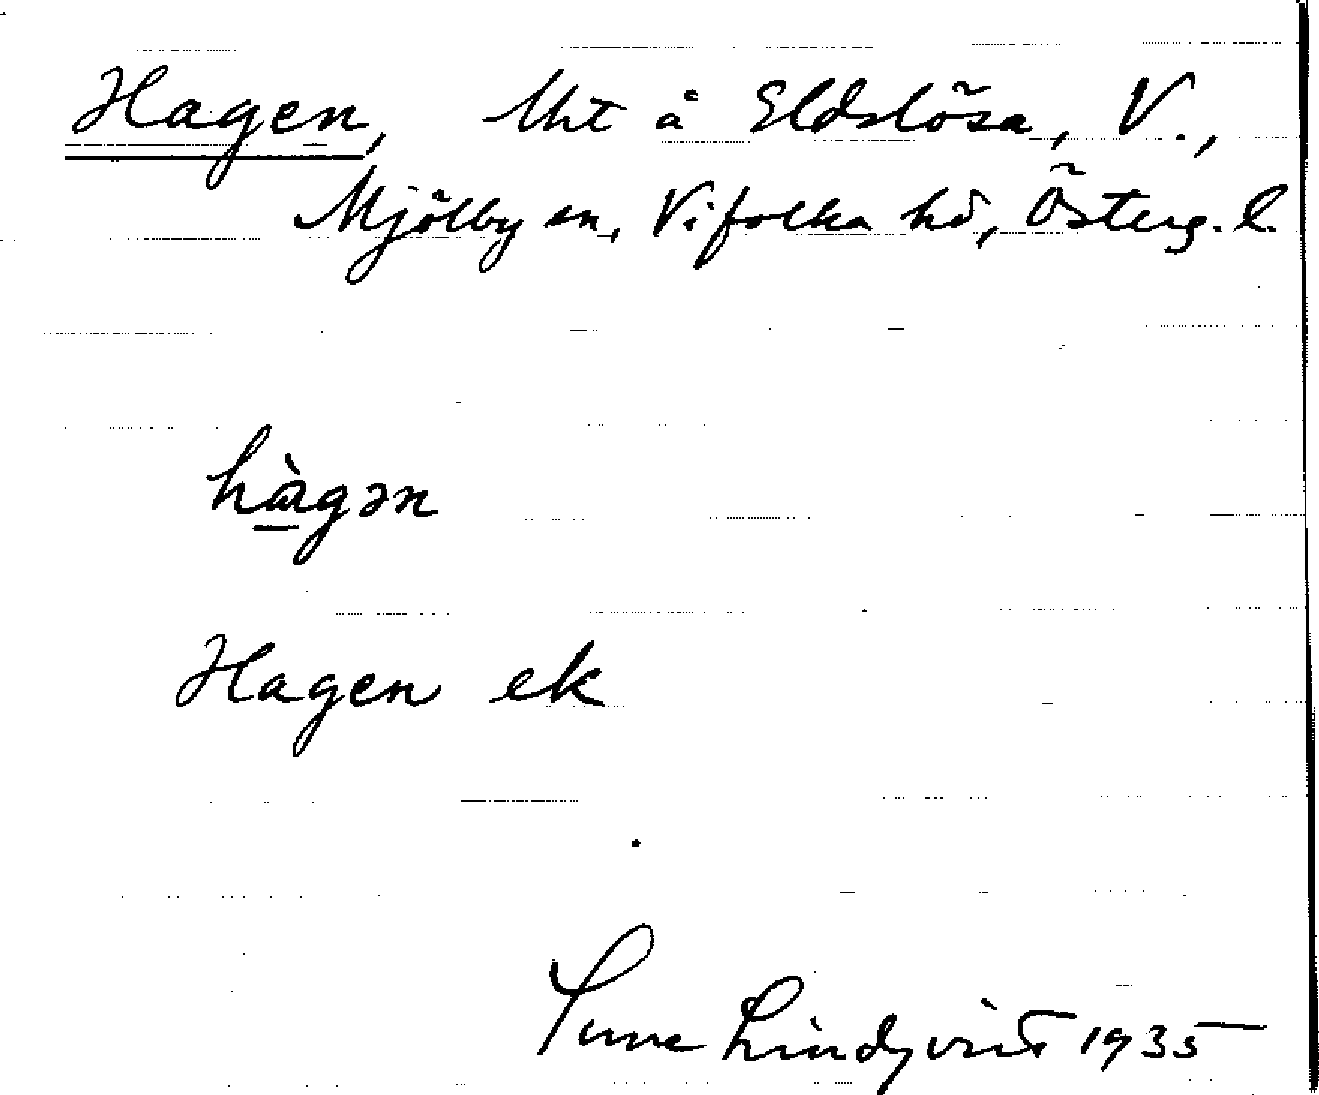 Hagen, lht å Eldslösa, V.,
Mjölby sn, Vifolka hd, Österg. l.
hàgən
Hagen ek
Sune Lindqvist 1935